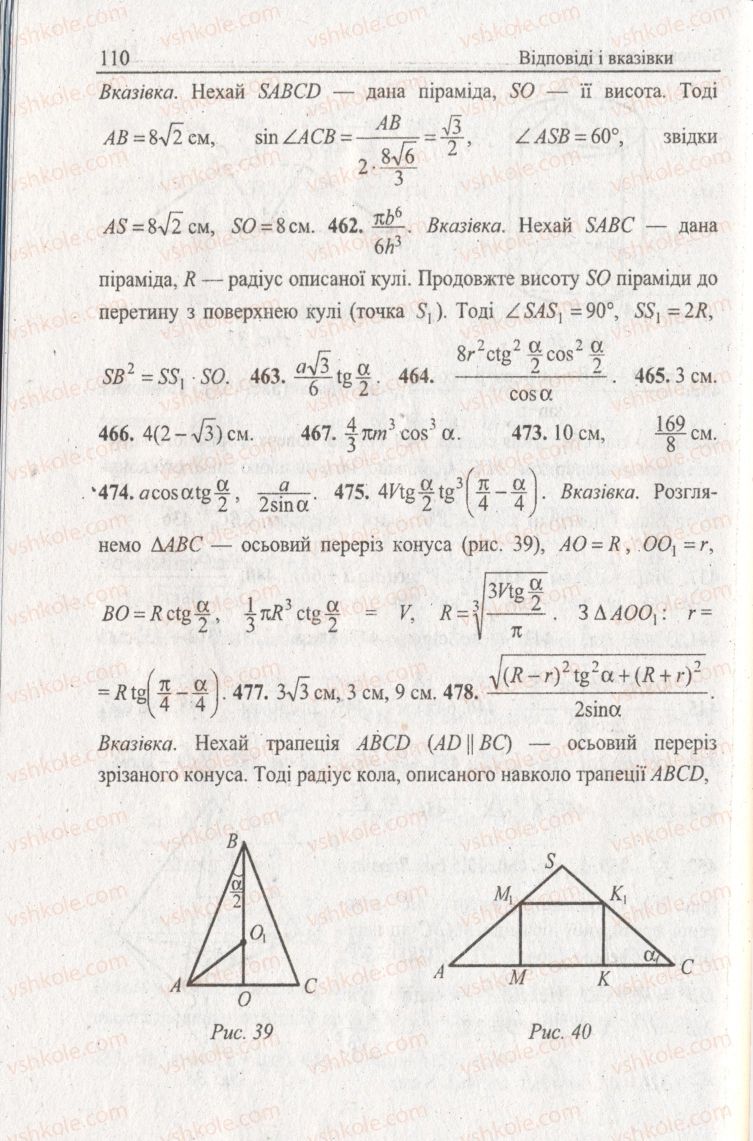 110 Відповіді і вказівки
Вказівка. Нехай SABCD — дана піраміда, SO — її висота. Тоді
AB = 8√2 см, sin ∠ACB = AB / (2 · 8√6/3) = √3/2, ∠ASB = 60°, звідки
AS = 8√2 см, SO = 8 см. 462. πb⁶/6h³. Вказівка. Нехай SABC — дана
піраміда, R — радіус описаної кулі. Продовжте висоту SO піраміди до
перетину з поверхнею кулі (точка S₁). Тоді ∠SAS₁ = 90°, SS₁ = 2R,
SB² = SS₁ · SO. 463. a√3/6 tg α/2. 464. (8r² ctg² α/2 cos² α/2) / cos α. 465. 3 см.
466. 4(2 − √3) см. 467. 4/3 πm³ cos³ α. 473. 10 см, 169/8 см.
474. a cos α tg α/2, a/(2 sin α). 475. 4V tg α/2 tg³(π/4 − α/4). Вказівка. Розгля-
немо ΔABC — осьовий переріз конуса (рис. 39), AO = R, OO₁ = r,
BO = R ctg α/2, 1/3 πR³ ctg α/2 = V, R = ∛(3V tg α/2 / π). З ΔAOO₁: r =
= R tg(π/4 − α/4). 477. 3√3 см, 3 см, 9 см. 478. √((R − r)² tg² α + (R + r)²) / 2sinα.
Вказівка. Нехай трапеція ABCD (AD ∥ BC) — осьовий переріз
зрізаного конуса. Тоді радіус кола, описаного навколо трапеції ABCD,
B
α/2
O₁
A O C
Рис. 39
S
M₁ K₁
α
A M K C
Рис. 40
vshkole.com